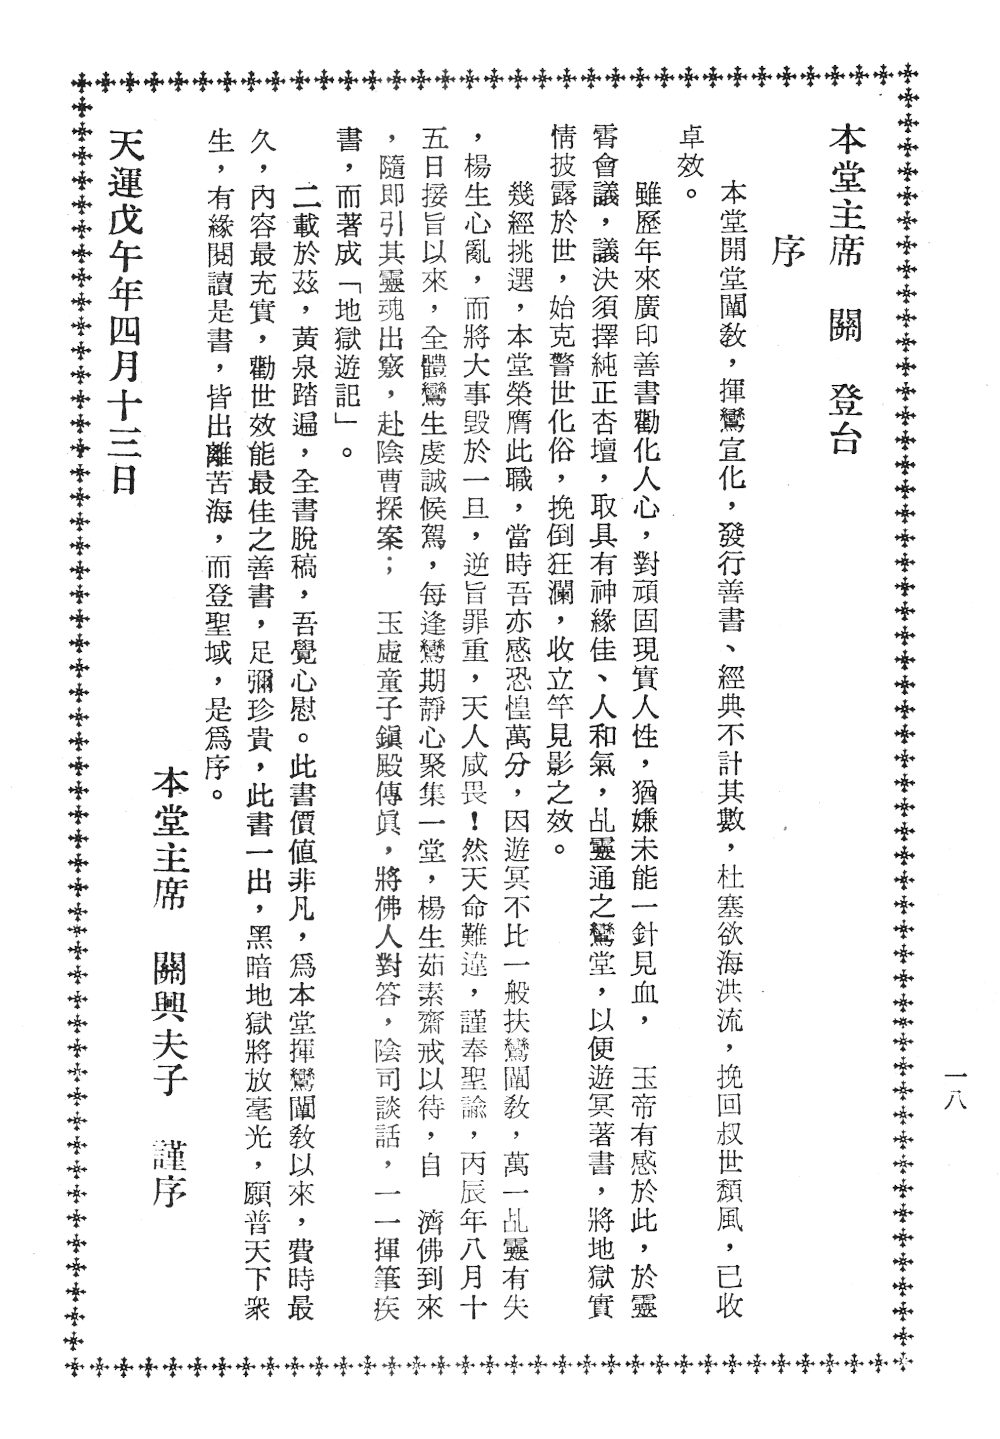 本堂主席　關　登台
序
本堂開堂闡敎，揮鸞宣化，發行善書、經典不計其數，杜塞欲海洪流，挽回叔世頹風，已收
卓效。
雖歷年來廣印善書勸化人心，對頑固現實人性，猶嫌未能一針見血，　玉帝有感於此，於靈
霄會議，議決須擇純正杏壇，取具有神緣佳、人和氣，乩靈通之鸞堂，以便遊冥著書，將地獄實
情披露於世，始克警世化俗，挽倒狂瀾，收立竿見影之效。
幾經挑選，本堂榮膺此職，當時吾亦感恐惶萬分，因遊冥不比一般扶鸞闡敎，萬一乩靈有失
，楊生心亂，而將大事毀於一旦，逆旨罪重，天人咸畏！然天命難違，謹奉聖諭，丙辰年八月十
五日接旨以來，全體鸞生虔誠候駕，每逢鸞期靜心聚集一堂，楊生茹素齋戒以待，自　濟佛到來
，隨即引其靈魂出竅，赴陰曹探案；　玉虛童子鎭殿傳眞，將佛人對答，陰司談話，一一揮筆疾
書，而著成「地獄遊記」。
二載於茲，黃泉踏遍，全書脫稿，吾覺心慰。此書價値非凡，爲本堂揮鸞闡敎以來，費時最
久，內容最充實，勸世效能最佳之善書，足彌珍貴，此書一出，黑暗地獄將放毫光，願普天下衆
生，有緣閱讀是書，皆出離苦海，而登聖域，是爲序。
本堂主席　關興夫子　謹序
天運戊午年四月十三日
一八